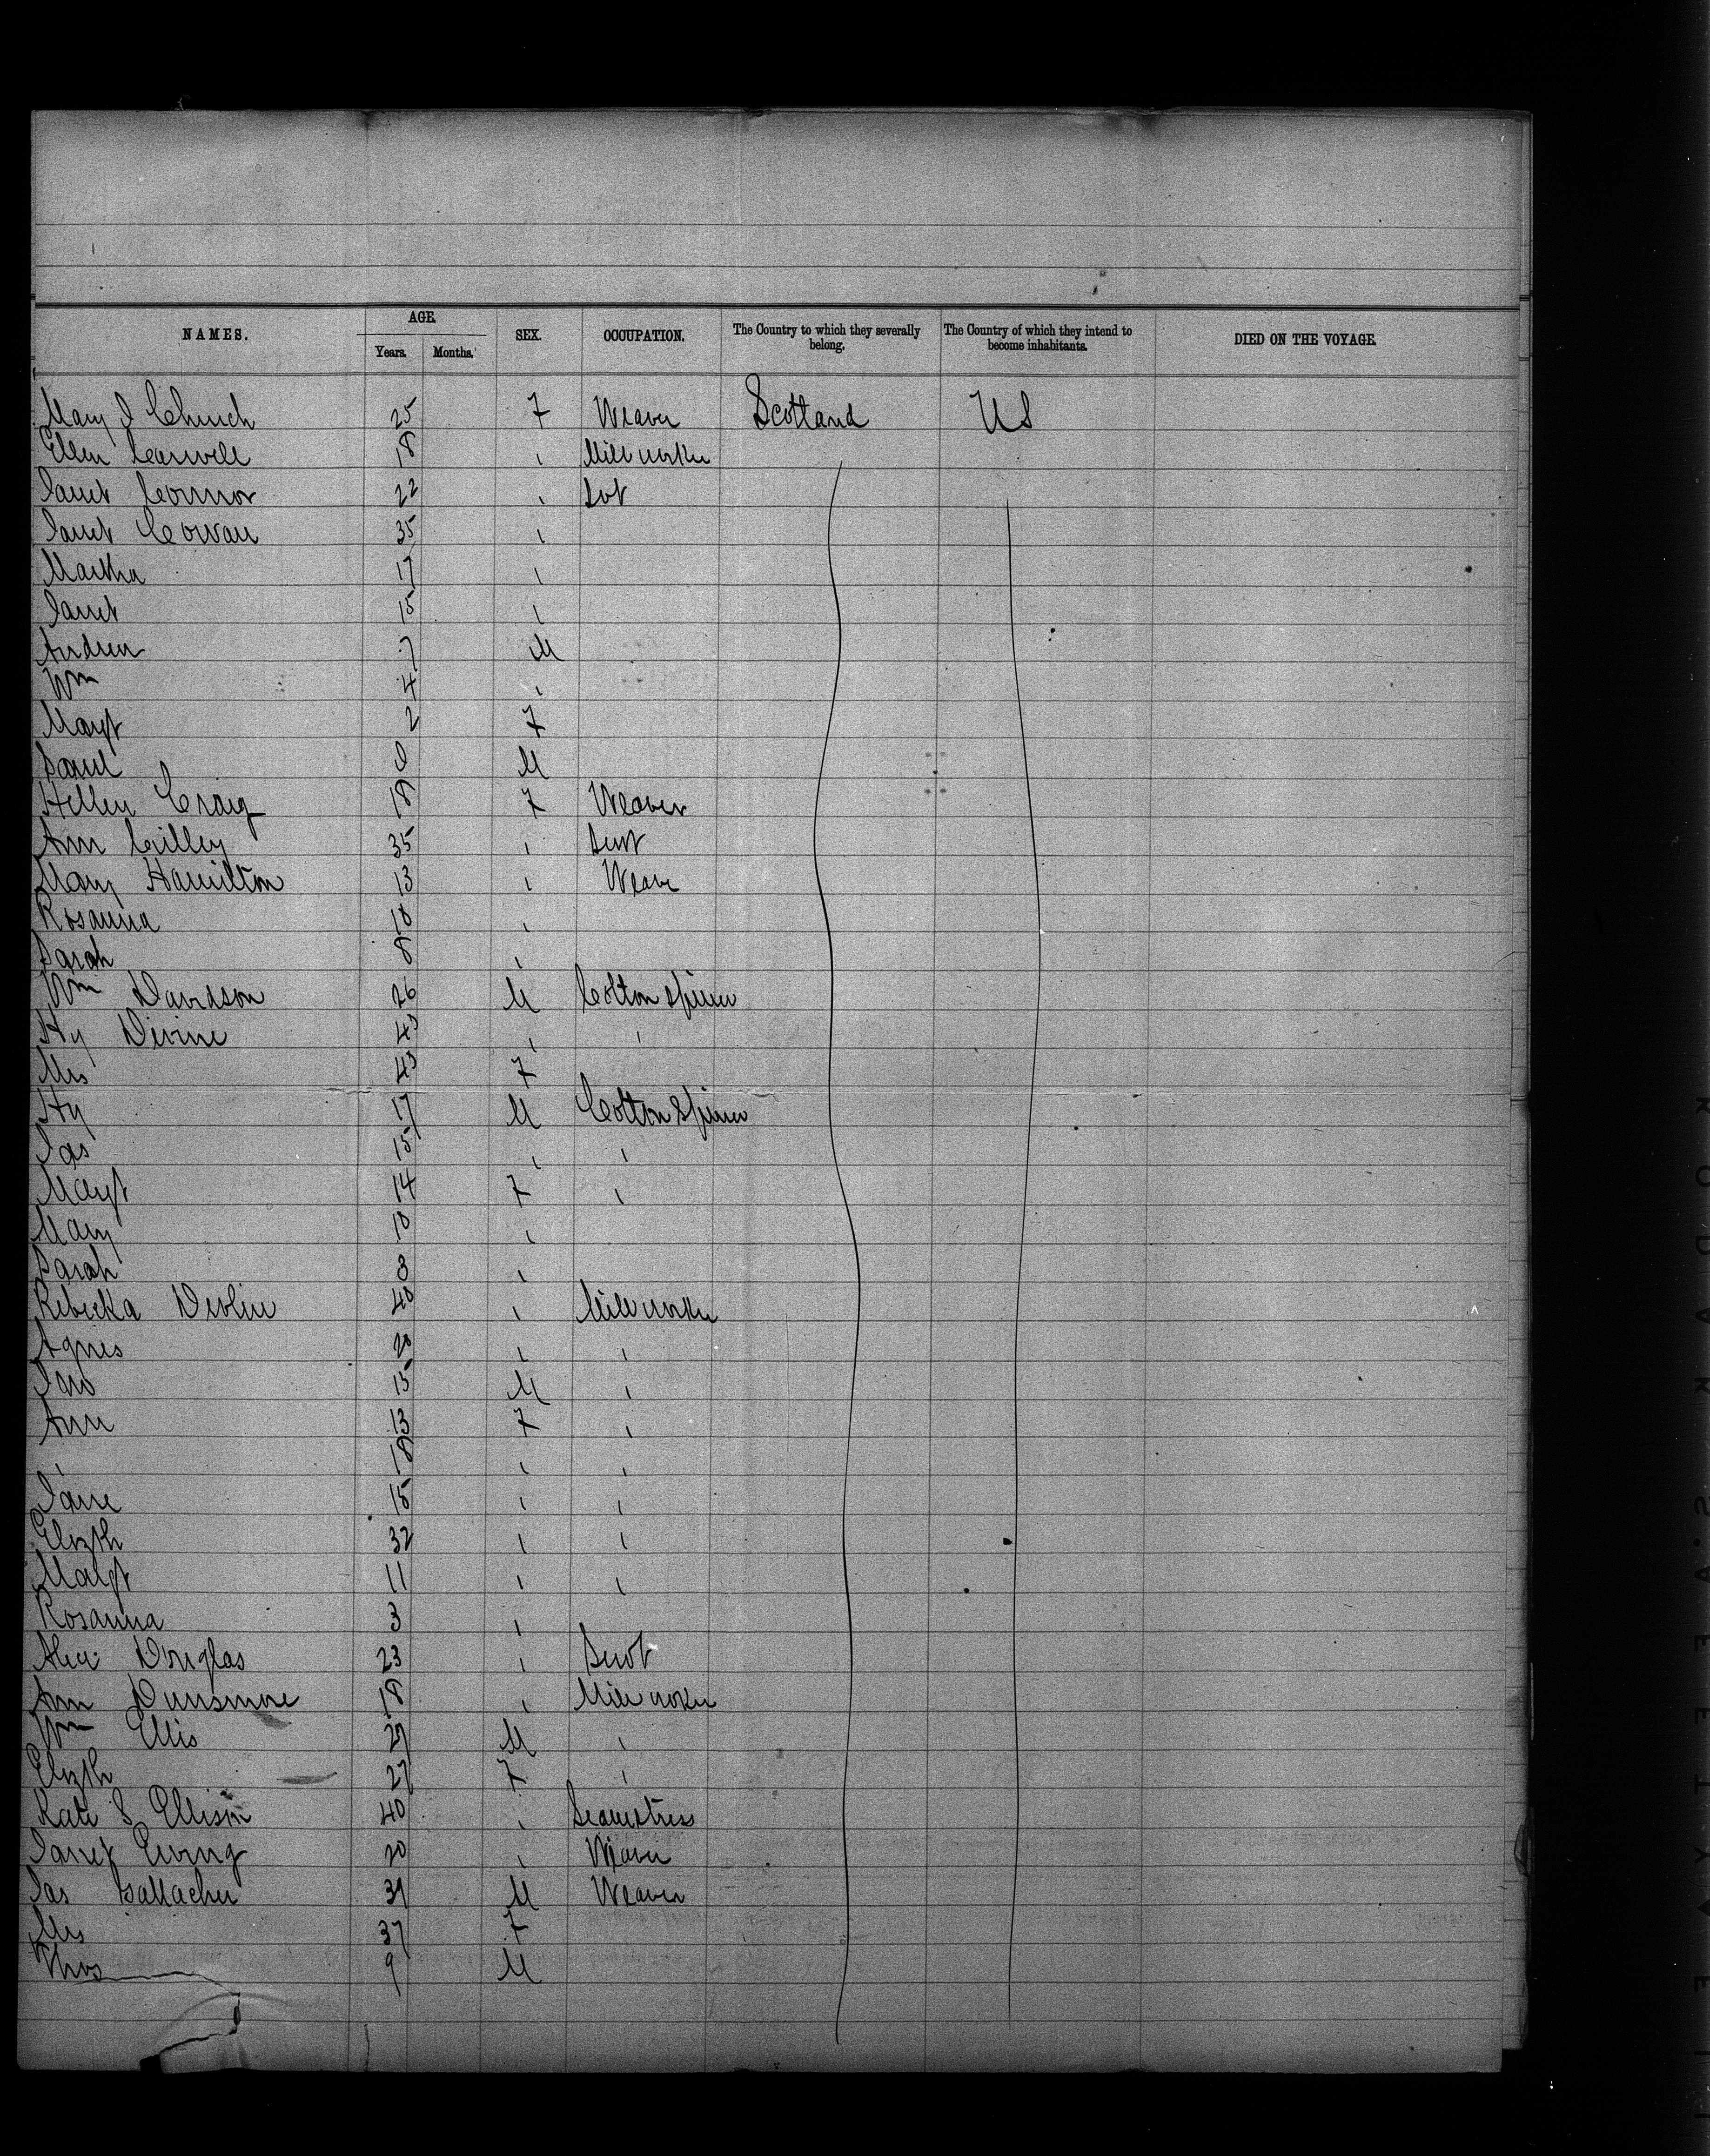 NAMES. AGE. Years. Months. SEX. OCCUPATION. The Country to which they severally belong. The Country of which they intend to become inhabitants. DIED ON THE VOYAGE.
Mary J Church 25 F Weaver Scotland US
Ellen Carswell 18 " Mill worker
Janet Connor 22 " Svt
Janet Cowan 35 "
Martha 17 "
Janet 15 "
Andrew 7 M
Wm 4 "
Margt 2 F
Saml 0 M
Hellen Craig 18 F Weaver
Ann Crilley 35 " Servt
Mary Hamilton 13 " Weaver
Rosanna 10 "
Sarah 8 "
Wm Davidson 26 M Cotton Spinner
Hy Divine 43 " "
Mrs 43 F
Hy 17 M Cotton Spinner
Jas 15 " "
Margt 14 F "
Mary 10 "
Sarah 8 "
Rebecka Devlin 40 " Mill worker
Agnes 20 " "
Jas 15 M "
Ann 13 F "
" 18 " "
Jane 15 " "
Elizth 32 " "
Margt 11 " "
Rosanna 3 "
Alex Douglas 23 " Servt
Ann Dunsmore 18 " Mill worker
Wm Ellis 29 M "
Elizth 27 F "
Kate S Ellison 40 " Seamstress
Janet Ewing 20 " Weaver
Jas Gallacher 39 M Weaver
Mrs 37 F
Thos 9 M